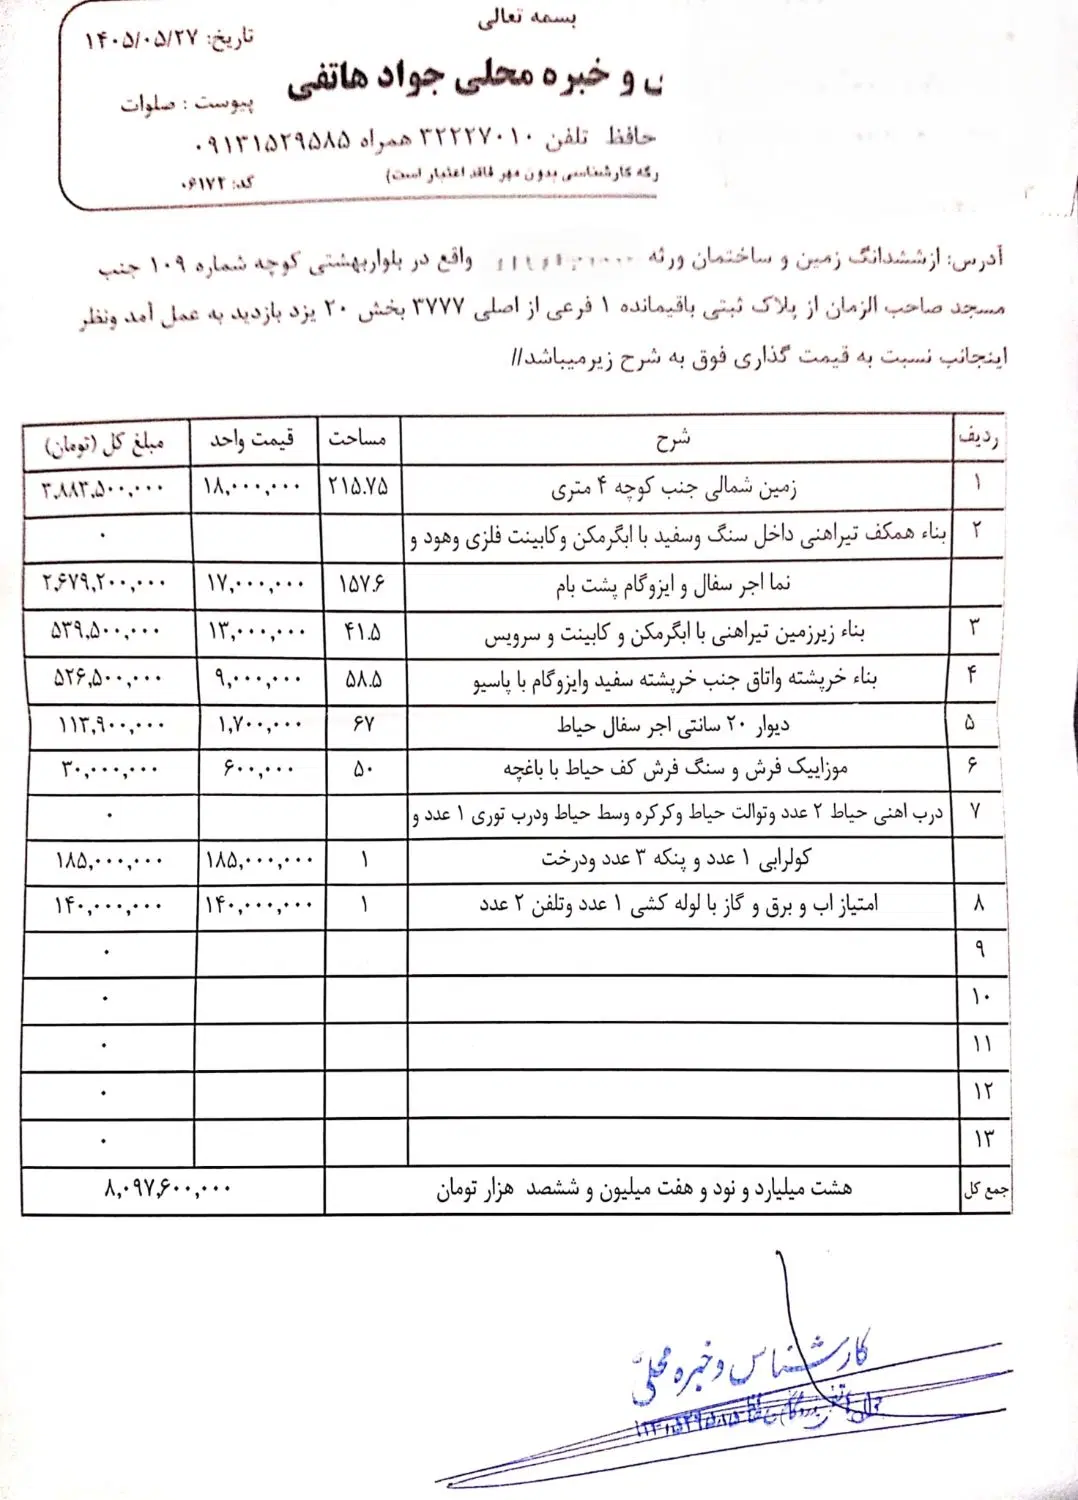 بسمه تعالی
تاریخ: ۱۴۰۵/۰۵/۲۷
و خبره محلی جواد هاتفی
پیوست : صلوات
حافظ تلفن ۳۲۲۲۷۰۱۰ همراه ۰۹۱۳۱۵۲۹۵۸۵
رگه کارشناسی بدون مهر فاقد اعتبار است)
کد: ۰۶۱۷۲
آدرس: ازششدانگ زمین و ساختمان ورثه واقع در بلواربهشتی کوچه شماره ۱۰۹ جنب
مسجد صاحب الزمان از پلاک ثبتی باقیمانده ۱ فرعی از اصلی ۳۷۷۷ بخش ۲۰ یزد بازدید به عمل آمد ونظر
اینجانب نسبت به قیمت گذاری فوق به شرح زیرمیباشد//
ردیف شرح مساحت قیمت واحد مبلغ کل (تومان)
۱ زمین شمالی جنب کوچه ۴ متری ۲۱۵.۷۵ ۱۸,۰۰۰,۰۰۰ ۳,۸۸۳,۵۰۰,۰۰۰
۲ بناء همکف تیراهنی داخل سنگ وسفید با ابگرمکن وکابینت فلزی وهود و ۰
نما اجر سفال و ایزوگام پشت بام ۱۵۷.۶ ۱۷,۰۰۰,۰۰۰ ۲,۶۷۹,۲۰۰,۰۰۰
۳ بناء زیرزمین تیراهنی با ابگرمکن و کابینت و سرویس ۴۱.۵ ۱۳,۰۰۰,۰۰۰ ۵۳۹,۵۰۰,۰۰۰
۴ بناء خرپشته واتاق جنب خرپشته سفید وایزوگام با پاسیو ۵۸.۵ ۹,۰۰۰,۰۰۰ ۵۲۶,۵۰۰,۰۰۰
۵ دیوار ۲۰ سانتی اجر سفال حیاط ۶۷ ۱,۷۰۰,۰۰۰ ۱۱۳,۹۰۰,۰۰۰
۶ موزاییک فرش و سنگ فرش کف حیاط با باغچه ۵۰ ۶۰۰,۰۰۰ ۳۰,۰۰۰,۰۰۰
۷ درب اهنی حیاط ۲ عدد وتوالت حیاط وکرکره وسط حیاط ودرب توری ۱ عدد و ۰
کولرابی ۱ عدد و پنکه ۳ عدد ودرخت ۱ ۱۸۵,۰۰۰,۰۰۰ ۱۸۵,۰۰۰,۰۰۰
۸ امتیاز اب و برق و گاز با لوله کشی ۱ عدد وتلفن ۲ عدد ۱ ۱۴۰,۰۰۰,۰۰۰ ۱۴۰,۰۰۰,۰۰۰
۹ ۰
۱۰ ۰
۱۱ ۰
۱۲ ۰
۱۳ ۰
جمع کل هشت میلیارد و نود و هفت میلیون و ششصد هزار تومان ۸,۰۹۷,۶۰۰,۰۰۰
کارشناس و خبره محلی